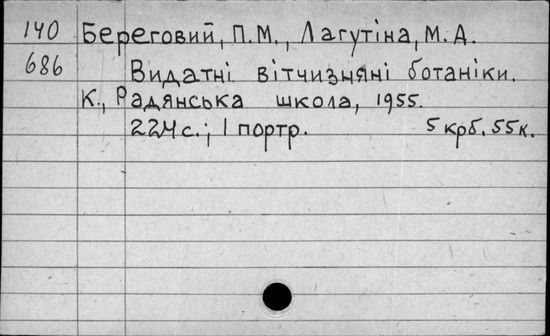 140 Береговий, П.М., Лагутіна, М.Д.
686 Видатні вітчизняні ботаніки.
К., Радянська школа, 1955.
224 с.; 1 портр. 5 крб. 55 к.